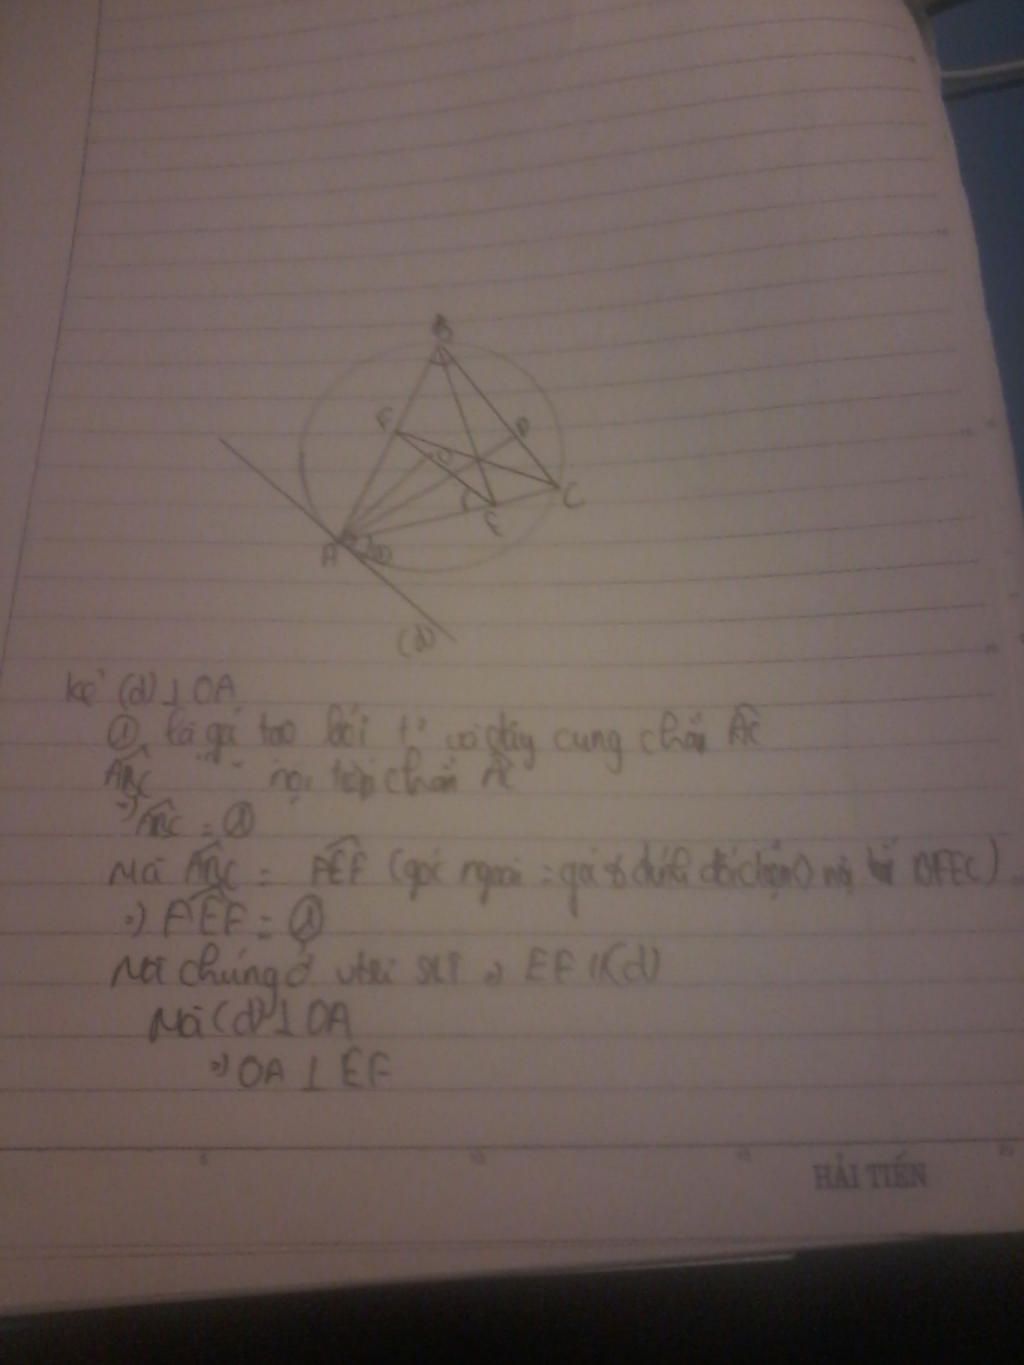 B
F
D
O
C
E
A
(d)
kẻ (d) ⊥ OA
① là góc tạo bởi t² và dây cung chắn AC
ABC " " nội tiếp chắn AC
=> ABC = ①
Mà ABC = AEF (góc ngoài = góc ở đỉnh đối diện) BFEC)
=> AEF = ①
Mà chúng ở vtrí SLT => EF // (d)
Mà (d) ⊥ OA
=> OA ⊥ EF
HẢI TIẾN